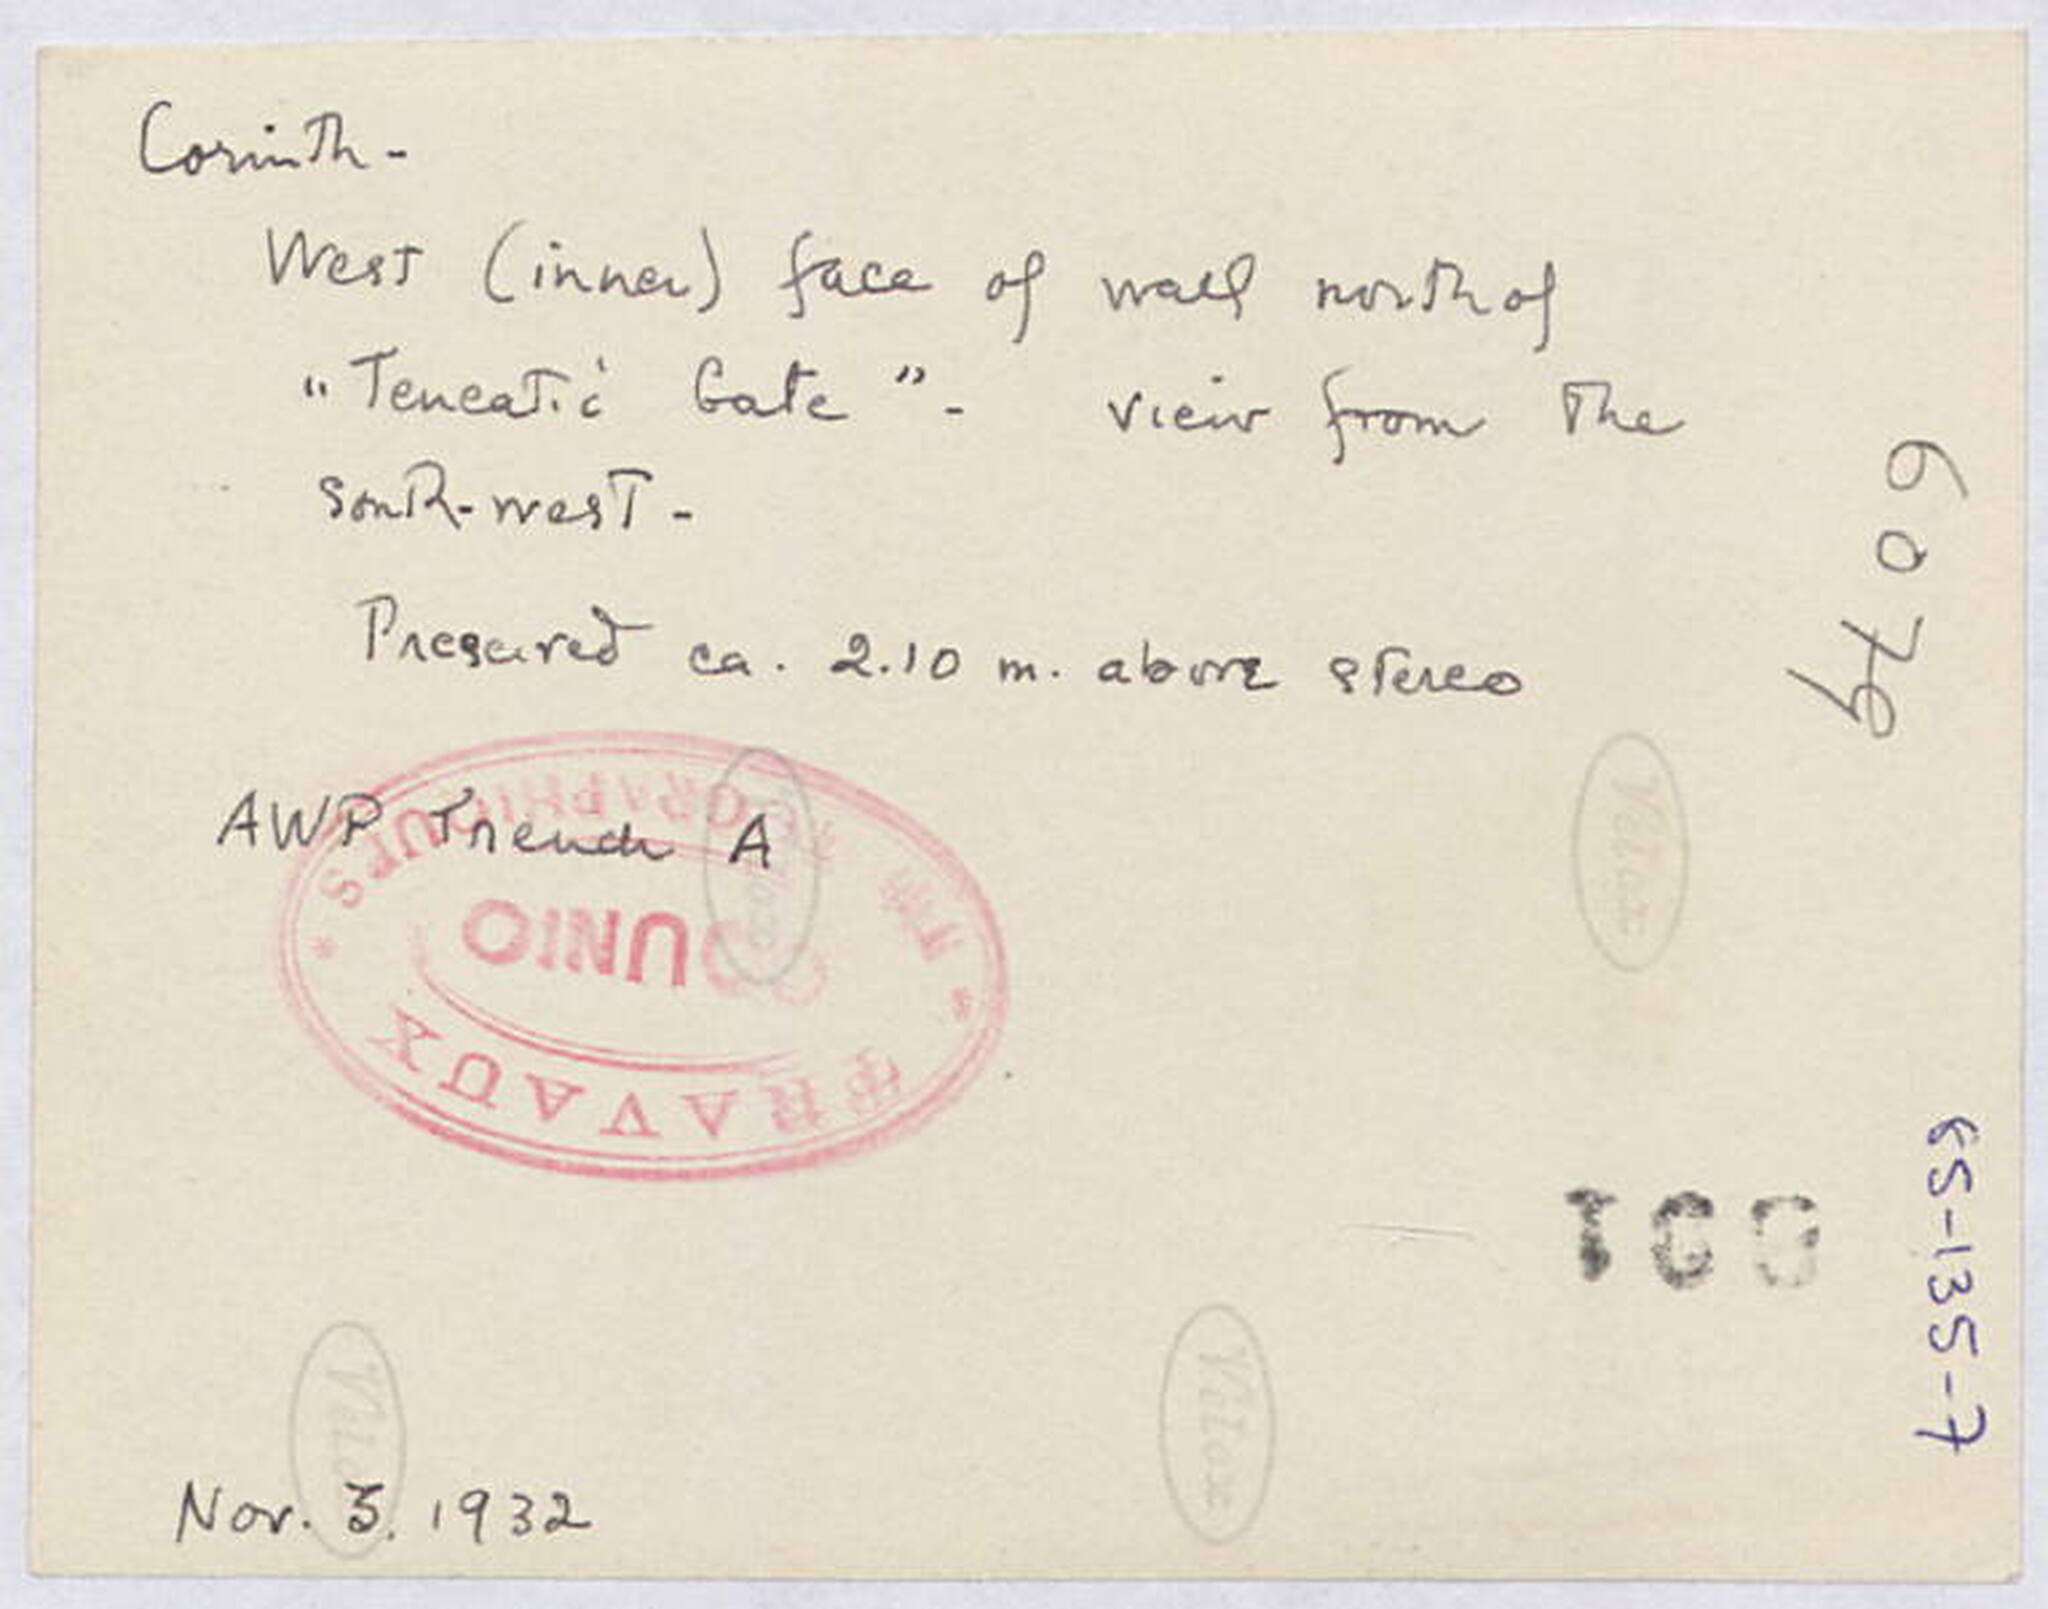 Corinth -
West (inner) face of wall north of
"Teneatic Gate" - view from the
south-west -
Preserved ca. 2.10 m. above stereo
AWP Trench A
TRAVAUX
OUNIO
Velox
Velox
Velox
Velox
Nov. 3. 1932
KS-135-7